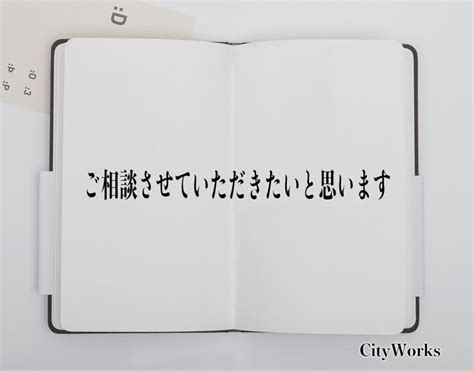 :D
:O :3
:P :P
ご相談させていただきたいと思います
CityWorks